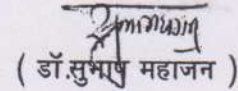 ( डॉ.सुभाष महाजन )